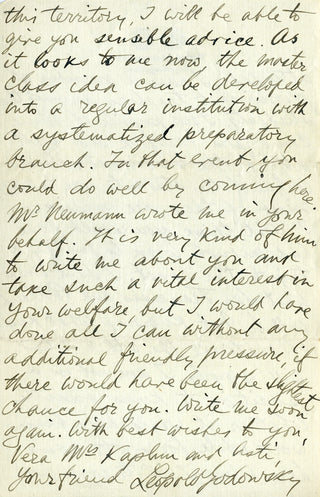 this territory, I will be able to
give you sensible advice. As
it looks to me now, the master
class idea can be developed
into a regular institution with
a systematized preparatory
branch. In that event, you
could do well by coming here.
Mr Neumann wrote me in your
behalf. It is very kind of him
to write me about you and
take such a vital interest in
your welfare, but I would have
done all I can without any
additional friendly pressure, if
there would have been the slightest
chance for you. Write me soon
again. With best wishes to you,
Vera Mrs Kaplun and
Your friend Leopold Godowsky